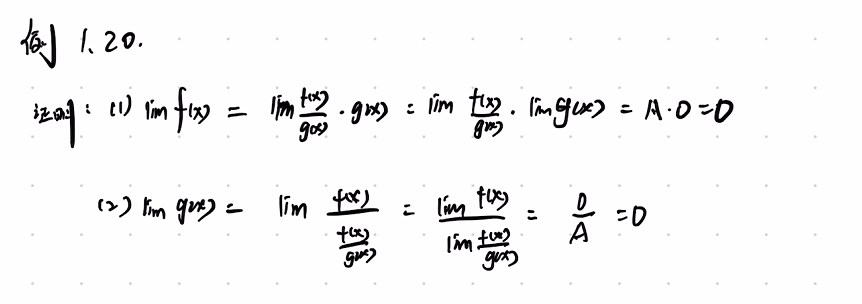 例 1.20.
证明: (1) lim f(x) = lim f(x)/g(x) · g(x) = lim f(x)/g(x) · lim g(x) = A · 0 = 0
(2) lim g(x) = lim f(x)/(f(x)/g(x)) = lim f(x)/lim f(x)/g(x) = 0/A = 0